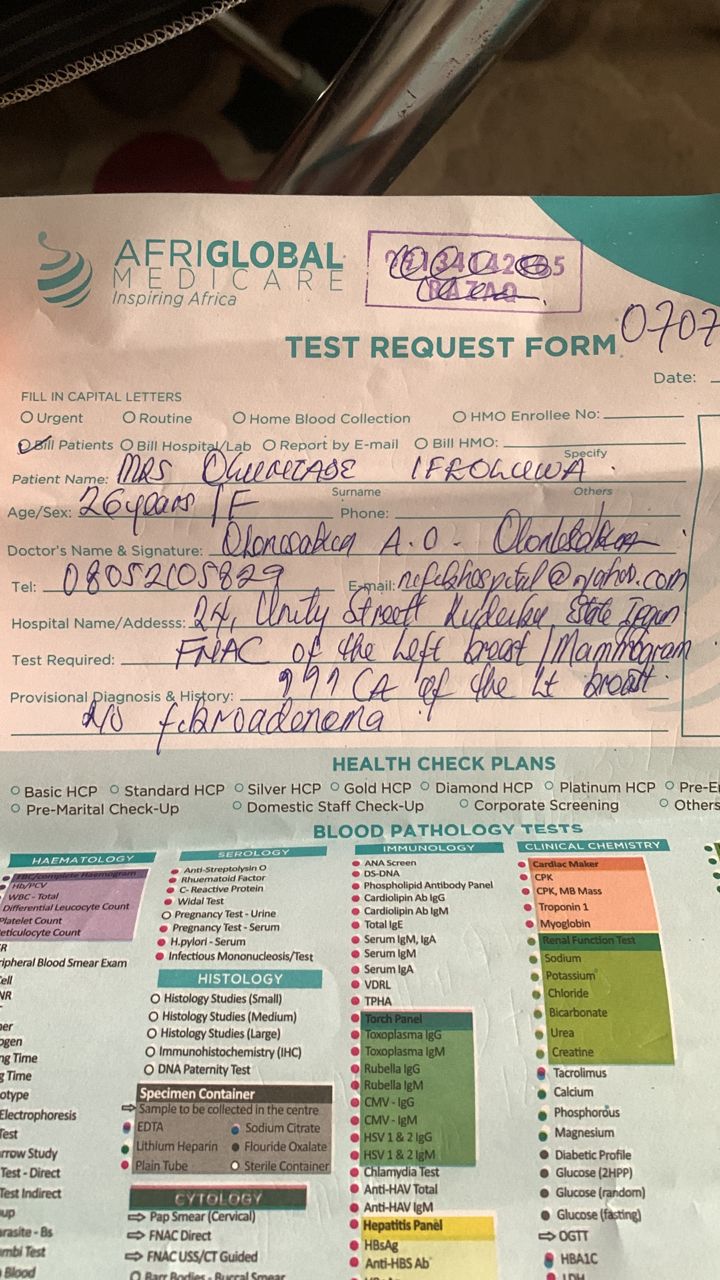 AFRIGLOBAL
MEDICARE
Inspiring Africa
TEST REQUEST FORM
0707
Date:
FILL IN CAPITAL LETTERS
Urgent Routine Home Blood Collection HMO Enrollee No:
Bill Patients Bill Hospital/Lab Report by E-mail Bill HMO:
Specify
Patient Name: MRS
Surname Others
Age/Sex: 26 years / F Phone:
Doctor's Name & Signature: A.O.
Tel: 08052105829 E-mail: @yahoo.com
Hospital Name/Addesss: 24, Unity Street State
Test Required: FNAC of the Left breast / Mammogram
Provisional Diagnosis & History: ??? CA of the Lt breast
fibroadenoma
HEALTH CHECK PLANS
Basic HCP Standard HCP Silver HCP Gold HCP Diamond HCP Platinum HCP Pre-E
Pre-Marital Check-Up Domestic Staff Check-Up Corporate Screening Others
BLOOD PATHOLOGY TESTS
HAEMATOLOGY
FBC/complete Haemogram
Hb/PCV
WBC - Total
Differential Leucocyte Count
Platelet Count
eticulocyte Count
R
ripheral Blood Smear Exam
ell
NR
her
ogen
ng Time
g Time
otype
Electrophoresis
Test
rrow Study
Test - Direct
Test Indirect
up
arasite - Bs
mbi Test
Blood
SEROLOGY
Anti-Streptolysin O
Rheumatoid Factor
C- Reactive Protein
Widal Test
Pregnancy Test - Urine
Pregnancy Test - Serum
H.pylori - Serum
Infectious Mononucleosis/Test
HISTOLOGY
Histology Studies (Small)
Histology Studies (Medium)
Histology Studies (Large)
Immunohistochemistry (IHC)
DNA Paternity Test
Specimen Container
Sample to be collected in the centre
EDTA Sodium Citrate
Lithium Heparin Flouride Oxalate
Plain Tube Sterile Container
CYTOLOGY
Pap Smear (Cervical)
FNAC Direct
FNAC USS/CT Guided
Barr Bodies - Buccal Smear
IMMUNOLOGY
ANA Screen
DS-DNA
Phospholipid Antibody Panel
Cardiolipin Ab IgG
Cardiolipin Ab IgM
Total IgE
Serum IgM, IgA
Serum IgM
Serum IgA
VDRL
TPHA
Torch Panel
Toxoplasma IgG
Toxoplasma IgM
Rubella IgG
Rubella IgM
CMV - IgG
CMV - IgM
HSV 1 & 2 IgG
HSV 1 & 2 IgM
Chlamydia Test
Anti-HAV Total
Anti-HAV IgM
Hepatitis Panel
HBsAg
Anti-HBS Ab
CLINICAL CHEMISTRY
Cardiac Maker
CPK
CPK, MB Mass
Troponin 1
Myoglobin
Renal Function Test
Sodium
Potassium
Chloride
Bicarbonate
Urea
Creatine
Tacrolimus
Calcium
Phosphorous
Magnesium
Diabetic Profile
Glucose (2HPP)
Glucose (random)
Glucose (fasting)
OGTT
HBA1C
LDH